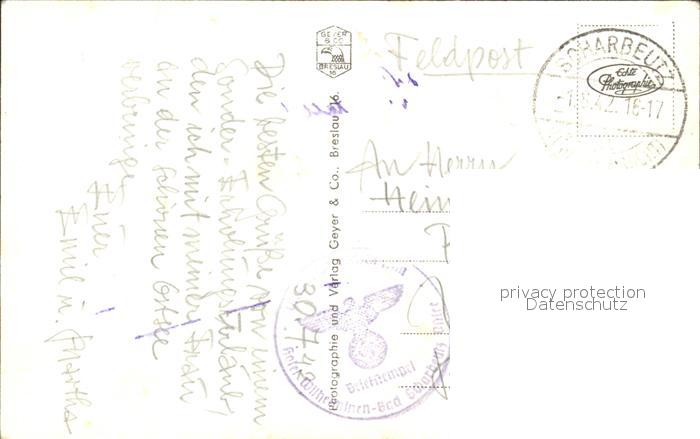 Die besten Grüße von einem
Sonder-Erholungsurlaub,
den ich mit meiner Frau
an der schönen Ostsee
verbringe
Euer
Emil u. Martha
30.7.42
GEYER
& CO
BRESLAU
16
Photographie und Verlag Geyer & Co., Breslau 16.
Feldpost
SCHARBEUTZ
Echte
Photographie
42. 16-17
An Herrn
Hein
Briefstempel
privacy protection
Datenschutz